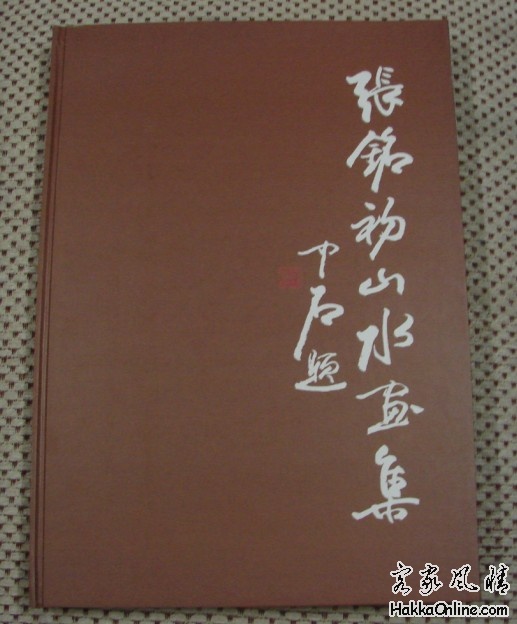 張銘初山水画集
中石题
客家风情
HakkaOnline.com